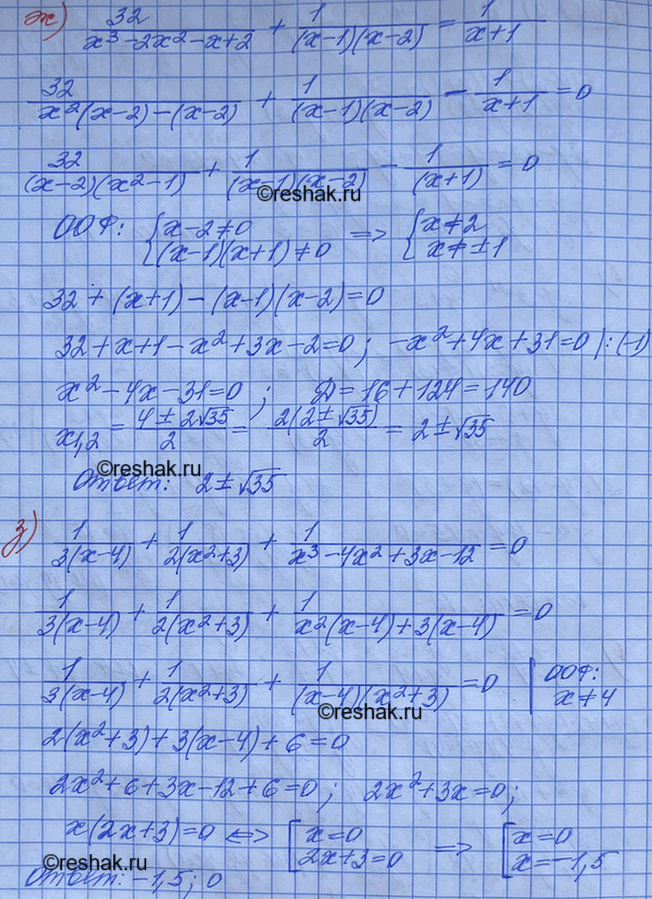 ж) 32/(x³-2x²-x+2) + 1/((x-1)(x-2)) = 1/(x+1)
32/(x²(x-2)-(x-2)) + 1/((x-1)(x-2)) - 1/(x+1) = 0
32/((x-2)(x²-1)) + 1/((x-1)(x-2)) - 1/(x+1) = 0
©reshak.ru
ООФ: { x-2≠0 ; (x-1)(x+1)≠0 => { x≠2 ; x≠±1
32 + (x+1) - (x-1)(x-2) = 0
32+x+1-x²+3x-2=0; -x²+4x+31=0 |:(-1)
x²-4x-31=0; Д=16+124=140
x1,2 = (4±2√35)/2 = 2(2±√35)/2 = 2±√35
©reshak.ru
Ответ: 2±√35
з) 1/(3(x-4)) + 1/(2(x²+3)) + 1/(x³-4x²+3x-12) = 0
1/(3(x-4)) + 1/(2(x²+3)) + 1/(x²(x-4)+3(x-4)) = 0
1/(3(x-4)) + 1/(2(x²+3)) + 1/((x-4)(x²+3)) = 0 | ООФ: x≠4
©reshak.ru
2(x²+3)+3(x-4)+6=0
2x²+6+3x-12+6=0; 2x²+3x=0;
x(2x+3)=0 <=> [ x=0 ; 2x+3=0 => [ x=0 ; x=-1,5
©reshak.ru
Ответ: -1,5; 0